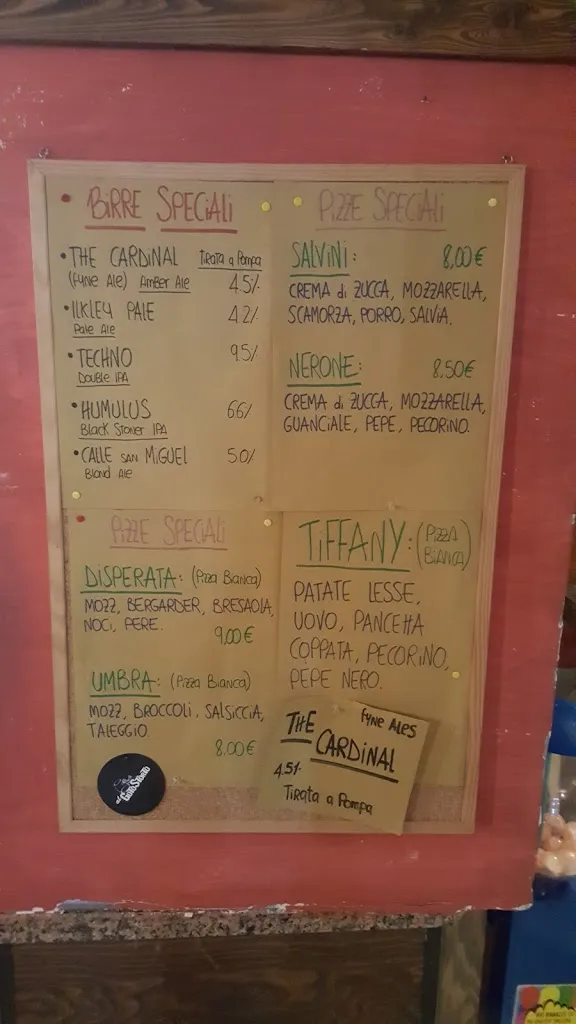 BIRRE SPECIALI
• THE CARDINAL Tirata a Pompa
(Fyne Ale) Amber Ale 4.5%
• ILKLEY PALE 4.2%
Pale Ale
• TECHNO 9.5%
Double IPA
• HUMULUS 6.6%
Black Stoner IPA
• CALLE SAN MIGUEL 5.0%
Blond Ale
PIZZE SPECIALI
SALVINI: 8,00€
CREMA di ZUCCA, MOZZARELLA,
SCAMORZA, PORRO, SALVIA.
NERONE: 8.50€
CREMA di ZUCCA, MOZZARELLA,
GUANCIALE, PEPE, PECORINO.
PIZZE SPECIALI
DISPERATA: (Pizza Bianca)
MOZZ, BERGARDER, BRESAOLA,
NOCI, PERE.
9.00€
UMBRA: (Pizza Bianca)
MOZZ, BROCCOLI, SALSICCIA,
TALEGGIO
8.00€
TIFFANY: (PIZZA BIANCA)
PATATE LESSE,
UOVO, PANCETTA
COPPATA, PECORINO,
PEPE NERO.
THE CARDINAL
FYNE ALES
4.5%
Tirata a Pompa